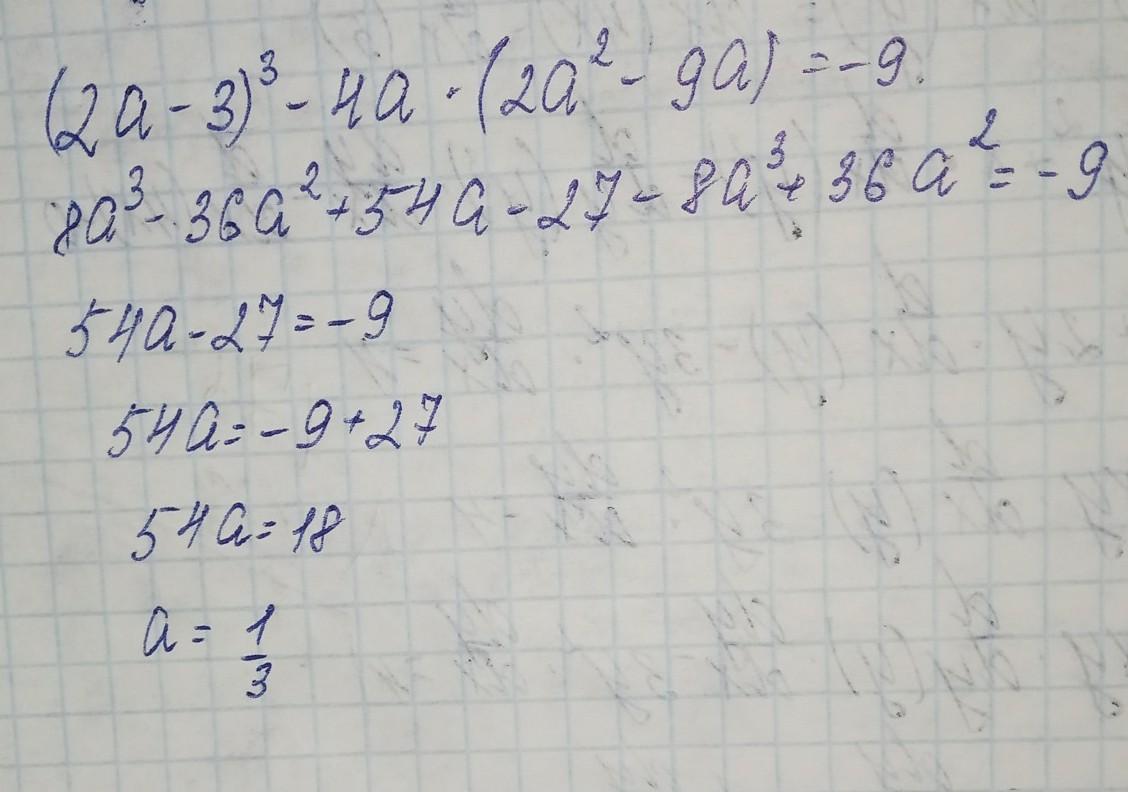 (2a - 3)³ - 4a · (2a² - 9a) = -9.
8a³ - 36a² + 54a - 27 - 8a³ + 36a² = -9
54a - 27 = -9
54a = -9 + 27
54a = 18
a = 1/3